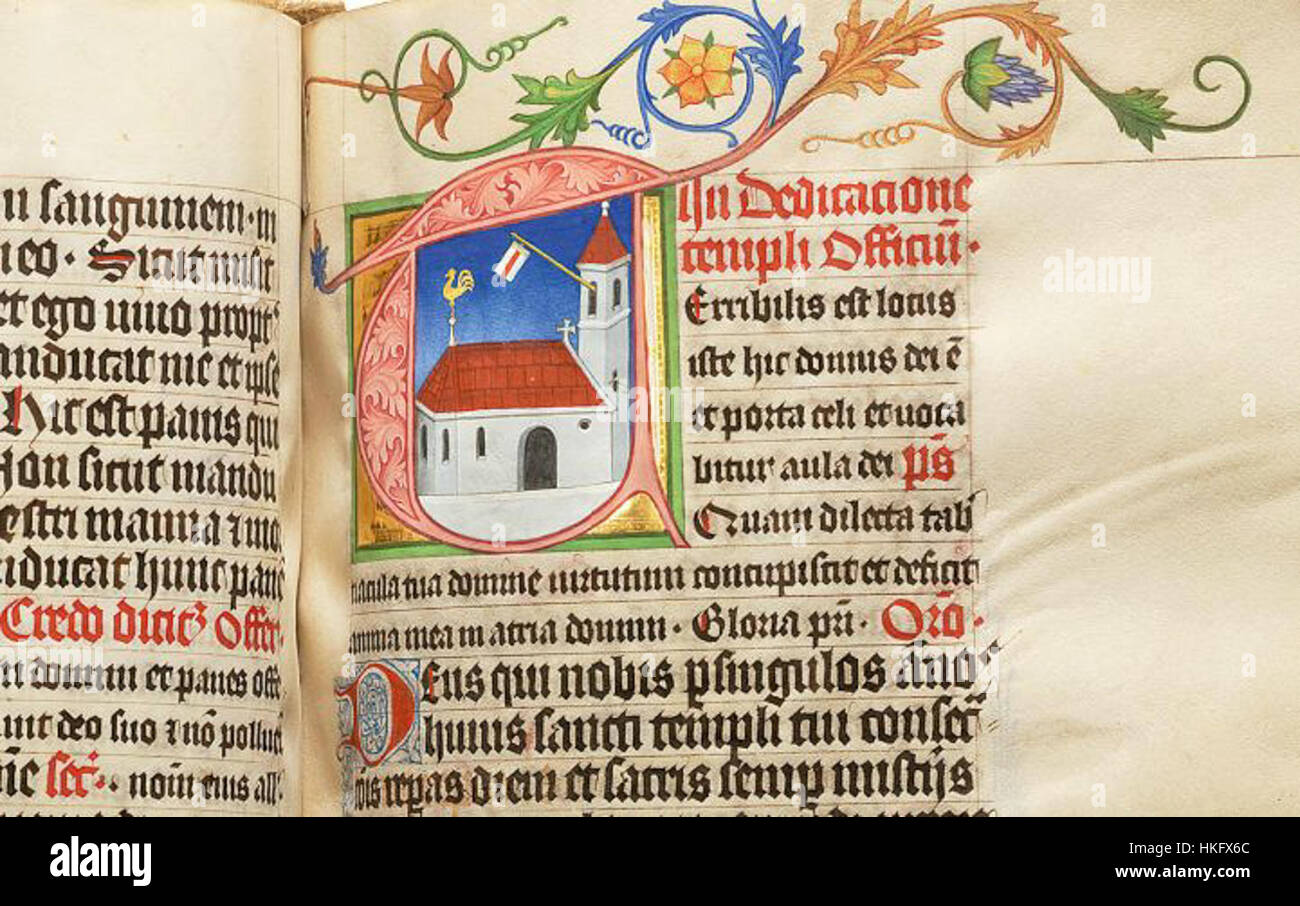 sanguinem · m
Sicut misit
et ego uiuo propt
anducat me et ipse
Hic est panis qui
Non sicut mandu
estri manna ⁊ mo
ducat hunc pane
Credo dicitꝛ Offer·
domini et panes offe
unt deo suo ⁊ nō polluet
Sec· nom eius all
In Dedicacione
templi Officiū·
Terribilis est locus
iste hic domus dei ē
et porta celi et uoca
bitur aula dei ps̄
Quam dilecta tab
nacula tua domine uirtutum concupiscit et deficit
anima mea in atria domini · Gloria pri · Oro·
Deus qui nobis p singulos annos
huius sancti templi tui consec
repas diem et sacris semp mistijs
a
alamy
a
alamy stock photo
HKFX6C
www.alamy.com